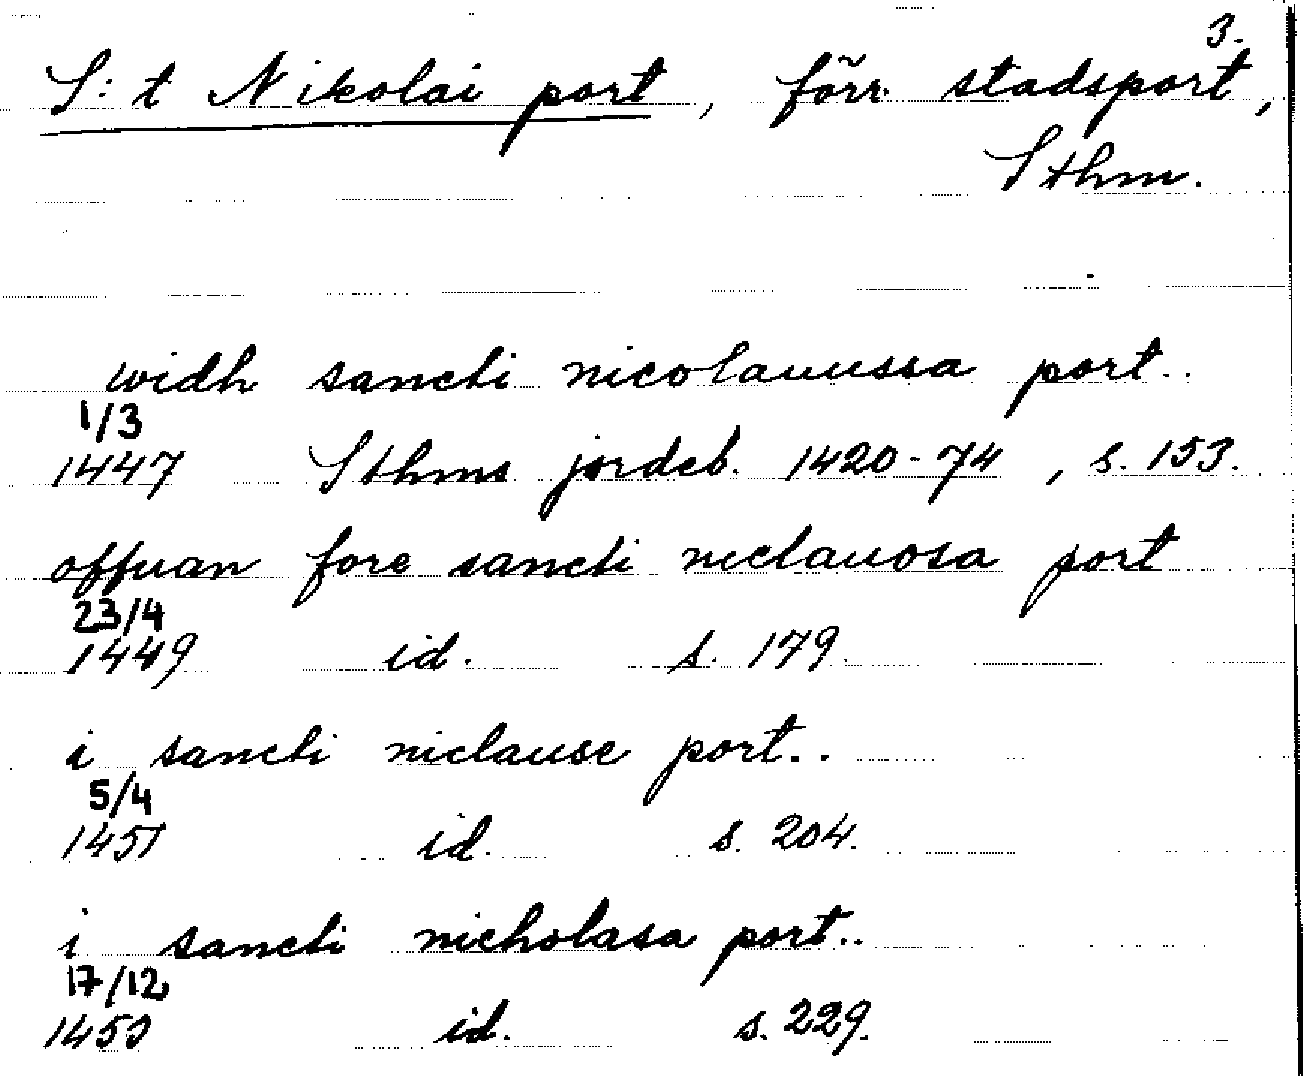 3.
S:t Nikolai port, förr. stadsport,
Sthm.
widh sancti nicolauussa port..
1/3
1447 Sthms jordeb. 1420-74, s. 153.
offuan fore sancti niclauosa port
23/4
1449 id. s. 179.
i sancti niclause port..
5/4
1451 id. s. 204.
i sancti nicholasa port..
17/12
id. s. 229.